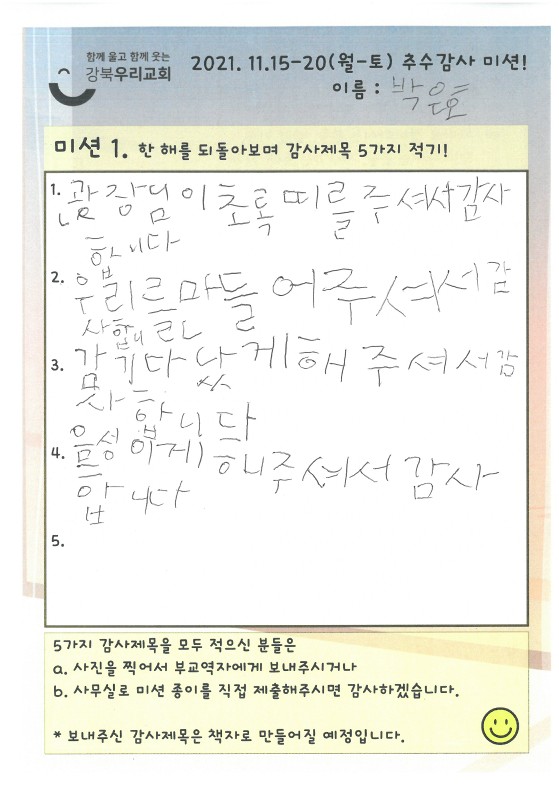 함께 울고 함께 웃는
강북우리교회
2021. 11.15-20(월-토) 추수감사 미션!
이름 : 박윤호
미션 1. 한 해를 되돌아보며 감사제목 5가지 적기!
1. 관장님이 초록띠를 주셔서 감사
합니다
2. 우리를 만들어주셔서 감
사합니다
3. 감기다낫게해주셔서 감
사합니다
4. 음성이게해주셔서 감사
합니다
5.
5가지 감사제목을 모두 적으신 분들은
a. 사진을 찍어서 부교역자에게 보내주시거나
b. 사무실로 미션 종이를 직접 제출해주시면 감사하겠습니다.
* 보내주신 감사제목은 책자로 만들어질 예정입니다.